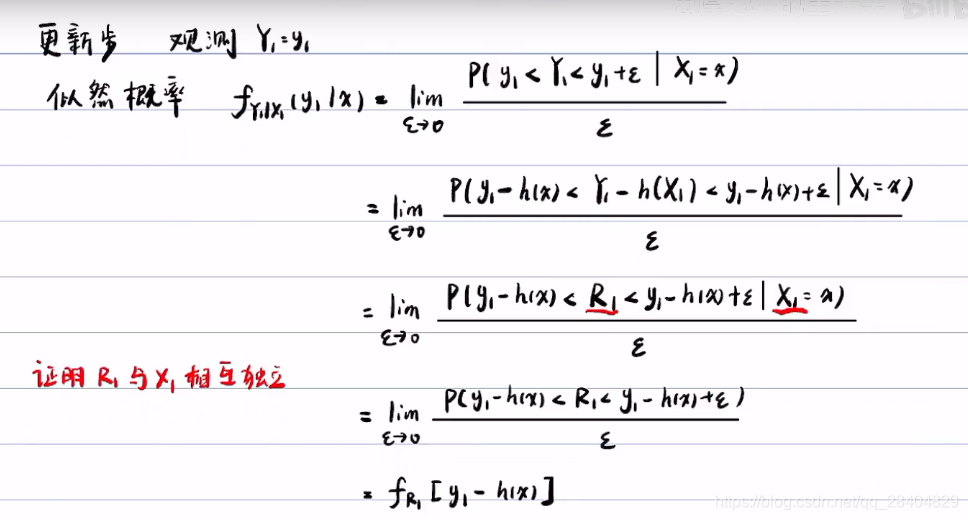 更新步 观测 Y₁=y₁
似然概率 f_{Y₁|X₁}(y₁|x) = lim_{ε→0} P(y₁ < Y₁ < y₁+ε | X₁=x) / ε
= lim_{ε→0} P(y₁-h(x) < Y₁-h(X₁) < y₁-h(x)+ε | X₁=x) / ε
= lim_{ε→0} P(y₁-h(x) < R₁ < y₁-h(x)+ε | X₁=x) / ε
证明 R₁ 与 X₁ 相互独立
= lim_{ε→0} P(y₁-h(x) < R₁ < y₁-h(x)+ε) / ε
= f_{R₁}[y₁-h(x)]
https://blog.csdn.net/qq_28404829